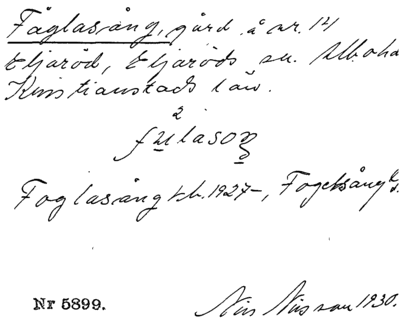 Fåglasång, gård å nr. 14
Eljaröd, Eljaröds sn. Albo hd
Kristianstads län.
2
fulasoŋ
Foglasång kb. 1927–, Fogelsång
Nr 5899.
Nils Nilsson 1930.